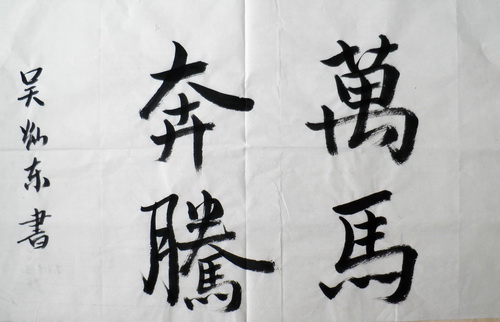 萬馬
奔騰
吴灿东書